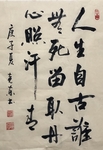 人生自古誰
無死留取丹
心照汗青
庚子夏